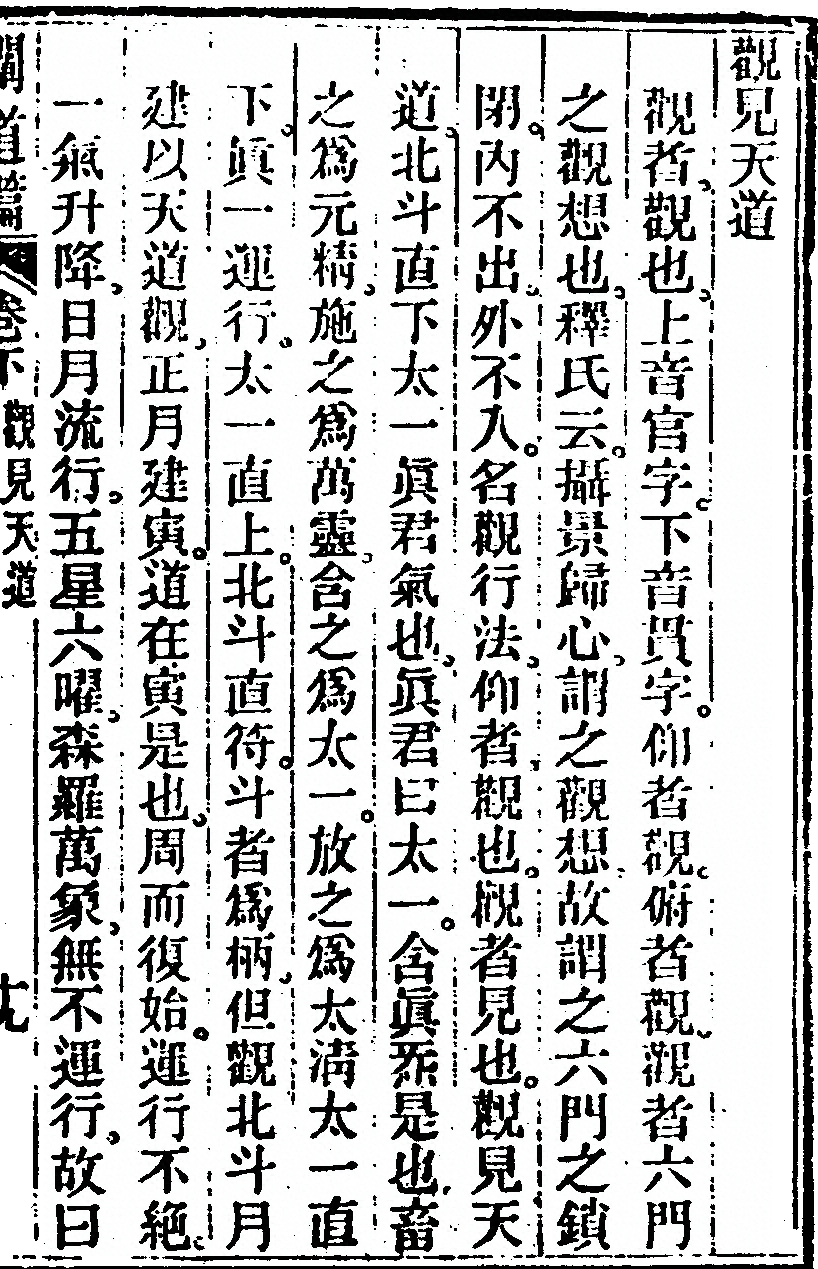 觀見天道
觀者。觀也。上音官字。下音貫字。仰者觀。俯者觀。觀者六門
之觀想也。釋氏云。攝景歸心。謂之觀想。故謂之六門之鎖
閉。內不出。外不入。名觀行法。仰者。觀也。觀者見也。觀見天
道。北斗直下太一眞君氣也。眞君曰太一。含眞炁是也。畜
之爲元精。施之爲萬靈。含之爲太一。放之爲太淸。太一直
下。眞一運行。太一直上。北斗直符。斗者爲柄。但觀北斗月
建以天道觀。正月建寅。道在寅是也。周而復始。運行不絶。
一氣升降。日月流行。五星六曜。森羅萬象。無不運行。故曰
道篇 卷下 觀見天道